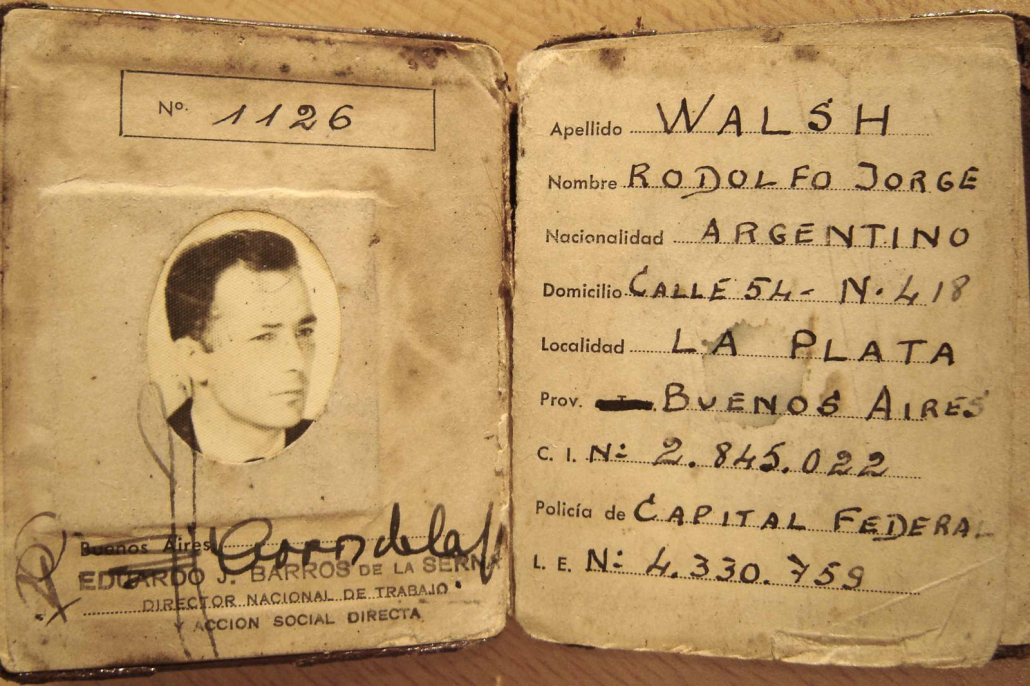 Nº. 1126
Buenos Aires
EDUARDO J. BARROS DE LA SERNA
DIRECTOR NACIONAL DE TRABAJO
Y ACCION SOCIAL DIRECTA
Apellido WALSH
Nombre RODOLFO JORGE
Nacionalidad ARGENTINO
Domicilio CALLE 54 - N. 418
Localidad LA PLATA
Prov. BUENOS AIRES
C. I. Nº 2.845.022
Policía de CAPITAL FEDERAL
L. E. Nº 4.330.759